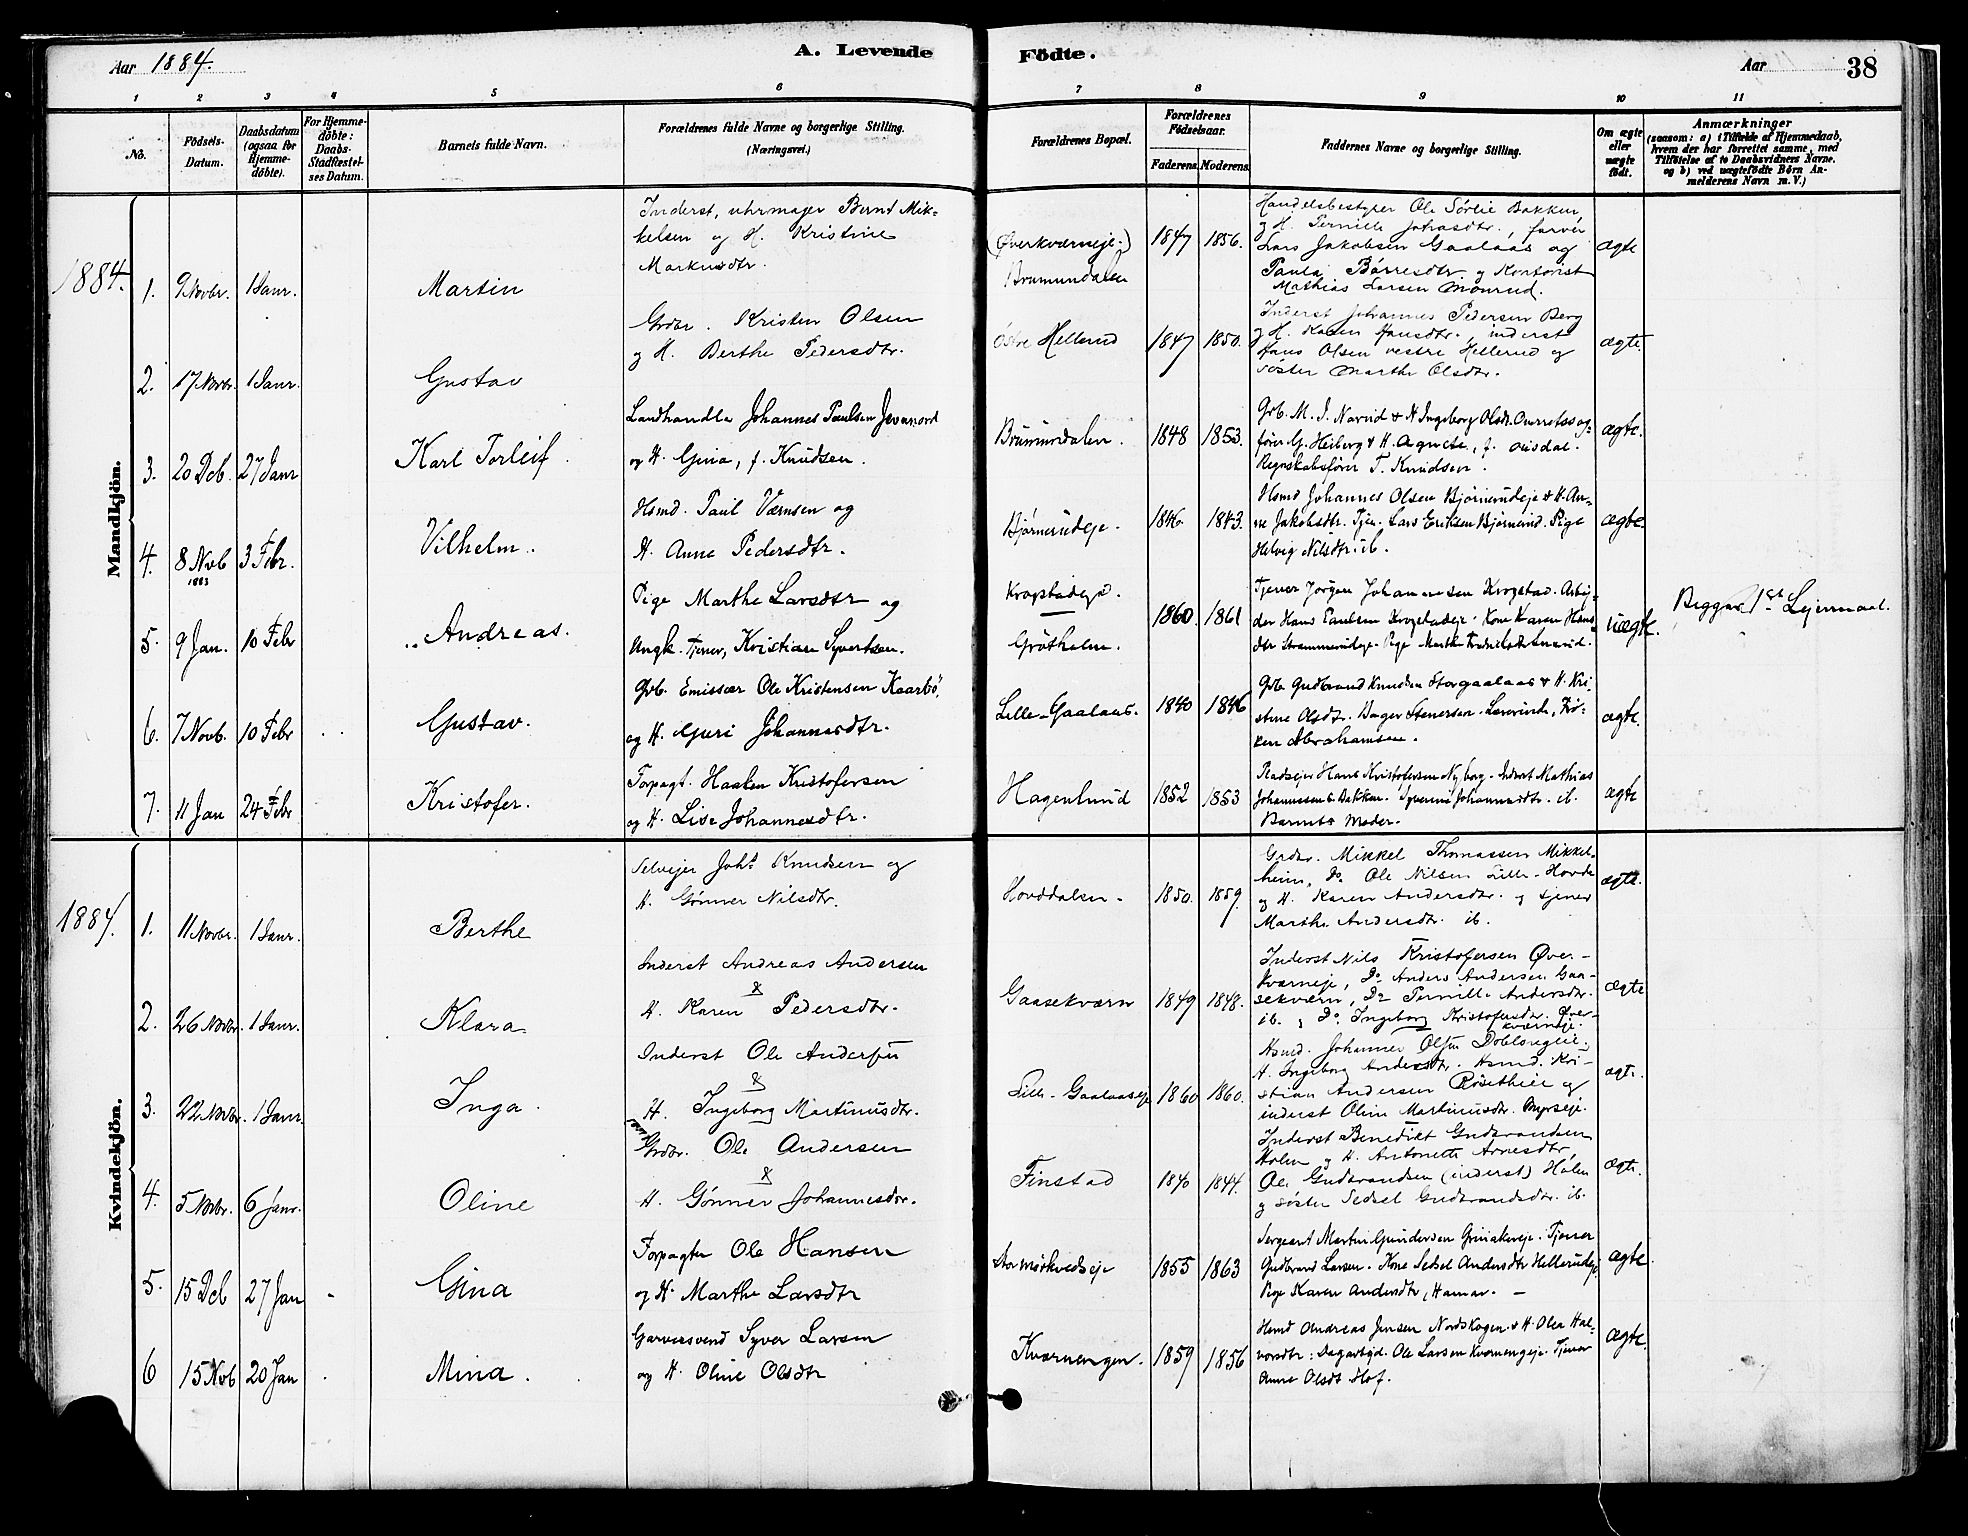 Aar 1884.
A. Levende
Födte.
Aar
38
1
2
3
4
5
6
7
8
9
10
11
No.
Födsels-Datum.
Daabsdatum (ogsaa for Hjemmedöbte).
For Hjemmedöbte: Daabs-Stadfæstelses Datum.
Barnets fulde Navn.
Forældrenes fulde Navne og borgerlige Stilling.
(Næringsvei.)
Forældrenes Bopæl.
Forældrenes Födselsaar.
Faderens.
Moderens.
Faddernes Navne og borgerlige Stilling.
Om ægte eller uægte födt.
Anmærkninger
(saasom: a) i Tilfælde af Hjemmedaab,
hvem der har forrettet samme, med
Tilföielse af to Daabsvidners Navne.
og b) ved uægtefödte Börn An-
melderens Navn m. V.)
Mandkjön.
1884.
1. 9 Novbr. 1 Janr. Martin
Inderst, uhrmager Bernt Mik-
kelsen og H. Kristine
Markusdtr.
(Øverkværneje.)
Brumundalen
1847 1856.
Handelsbestyrer Ole Sørlie Bakken,
g H. Pernille Johasdtr., farver
Lars Jakobsen Gaalaas og
Paula Børresdtr. g Kontorist
Mathias Larsen Monrud.
ægte
2. 17 Novbr. 1 Janr. Gustav
Grdbr. Kristen Olsen
g H. Berthe Pedersdtr.
østre Hellerud
1847 1850.
Inderst Johannes Pedersen Berg
g H. Karen Hansdtr., inderst
Hans Olsen vestre Hellerud og
søster Marthe Olsdtr.
ægte.
3. 20 Dcb. 27 Janr Karl Torleif.
Landhandler Johannes Paulsen
og H. Gina, f. Knudsen.
Brumundalen.
1848 1853.
Grb. M. J. Narud & H Ingeborg Olsdtr.
fører G. Heiberg & H. Agnete, f.
Regnskabsfører T. Knudsen.
ægte.
4. 8 Novb 1883 3 Febr. Vilhelm.
Hsmd. Paul Værnsen og
H. Anne Pedersdtr.
Bjørnerudeje.
1846 1843.
Hsmd Johannes Olsen Bjørnerudeje & H. An-
ne Jakobsdtr. Tjen. Lars Eriksen Bjørnerud. Pige
Helvig Nilsdtr. ib.
ægte.
5. 9 Jan. 10 Febr Andreas.
Pige Marthe Larsdtr og
Ungk. Tjener, Kristian Syvertsen.
Krogstadeje.
Grøtholm.
1860. 1861
Tjener Jørgen Johannesen Krogstad. Arbej-
der Hans Paulsen Krogstadeje. Kone Karen Hans-
dtr Strammerudeje. Pige Marthe
uægte.
Begges 1ste Lejermaal.
6. 7 Novb. 10 Febr Gustav.
Grb. Emissær Ole Kristensen Kaarbö,
og H. Guri Johannesdtr.
Lille-Gaalaas.
1840 1846
Grb Gudbrand Knudsen Storgaalaas & H. Kri-
stine Olsdtr. Bager Stenersen. Lærerinde, Frø-
ken Abrahamsen.
ægte.
7. 11 Jan 24 Febr Kristofer.
Forpagt. Haaken Kristofersen
og H. Lise Johannesdtr.
Hagenlund
1852 1853
Pladsejer Hans Kristofersen Nyborg. Inderst Mathias
Johannessen Bakken. Syverine Johannesdtr. ib.
Barnets Moder.
ægte
Kvindekjön.
1884.
1. 11 Novbr. 1 Janr. Berthe
Selvejer Johs Knudsen og
H. Gønner Nilsdtr.
Hovddalen.
1850. 1859.
Grdbr. Mikkel Thomassen Mikkel-
heim, Do Ole Nilsen Lille-Hovde
g H. Karen Andersdtr. g tjener
Marthe Andersdtr. ib.
ægte.
2. 26 Novbr. 1 Janr. Klara
Inderst Andreas Andersen
&
H. Karen Pedersdtr.
Gaasekværn
1849 1848.
Inderst Nils Kristofersen Øver-
kværneje, Do Anders Andersen Gaa-
sekværn, Do Pernille Andersdtr.
ib. g Do. Ingeborg Kristofersdtr. Øver-
kværneje.
ægte
3. 22 Novbr. 1 Janr. Inga.
Inderst Ole Andersen
&
H. Ingeborg Martinusdtr.
Lille-Gaalaaseje
1860 1860.
Hsmd. Johannes Olsen
H. Ingeborg Andersdtr. Hsmd. Kri-
stian Andersen Røsetheie og
inderst Oline Martinusdtr.
ægte.
4. 5 Novbr. 6 Janr. Oline
Grdbr. Ole Andersen
&
H. Gønner Johannesdtr.
Finstad
1840 1844.
Inderst Benedikt Gudbrandsen
Holen g H. Antonette Arnesdtr,
Ole Gudbrandsen (inderst) Holen
g søster Sedsel Gudbrandsdtr. ib.
ægte.
5. 15 Dcb 27 Jan Gina
Forpagter Ole Hansen
og H. Marthe Larsdtr
Stormørkvedseje
1855 1863
Sergeant Martin Gundersen. Tjener
Gudbrand Larsen. Kone Sedsel Andersdtr Hellerudeje.
Pige Karen Andersdtr, Hamar.
ægte.
6 15 Novb 20 Jan Mina.
Garversvend Syver Larsen
og H. Oline Olsdtr
Kværnengen.
1859 1856
Hsmd Andreas Jensen Nordskogen & H. Olea Hal-
vorsdtr: Dagarbejd. Ole Larsen Kværnengeje. Tjener
Anne Olsdt Hof.
ægte.